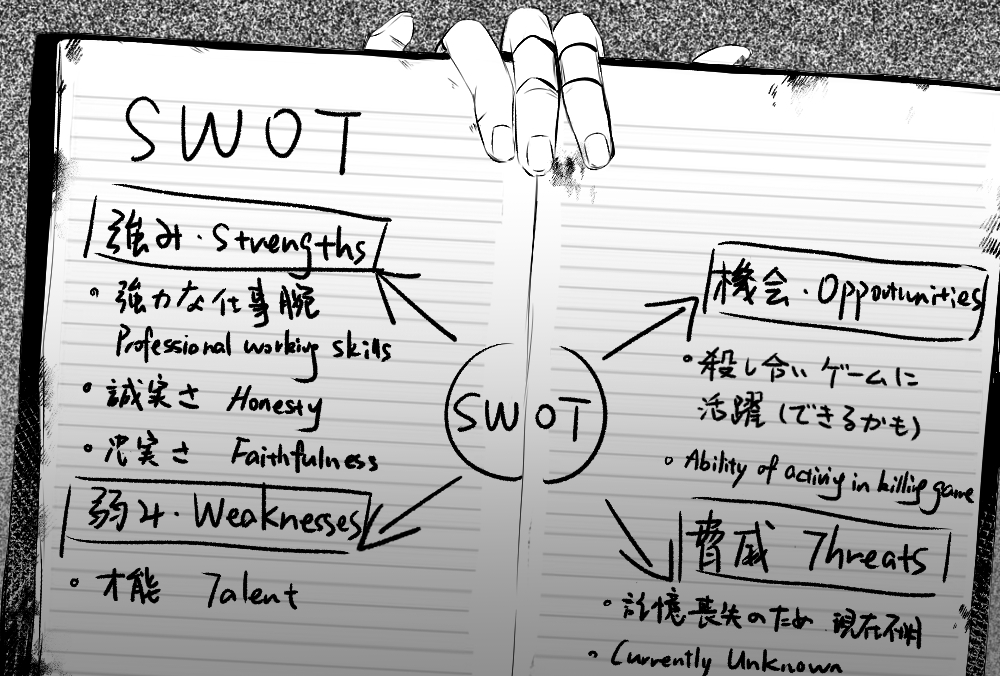 SWOT
強み・Strengths
・強力な仕事腕
Professional working skills
・誠実さ Honesty
・忠実さ Faithfulness
弱み・Weaknesses
・才能 Talent
SWOT
機会・Opportunities
・殺し合いゲームに
活躍(できるかも)
・Ability of activiy in killing game
脅威 Threats
・記憶喪失のため 現在不明
・Currently Unknown